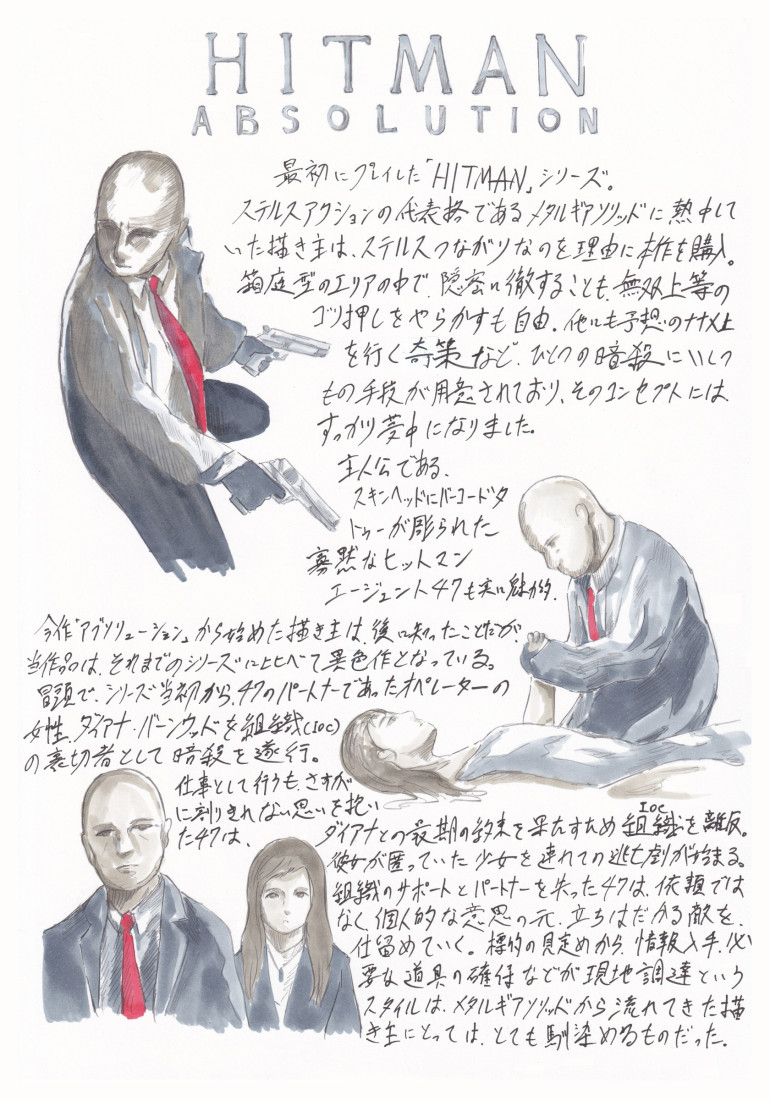 HITMAN
ABSOLUTION
最初にプレイした「HITMAN」シリーズ。
ステルスアクションの代表格であるメタルギアソリッドに熱中して
いた描き主は、ステルスつながりなのを理由に本作を購入。
箱庭型のエリアの中で、隠密に徹することも、無双上等の
ゴリ押しをやらかすも自由。他にも予想のナナメ上
を行く奇策など、ひとつの暗殺にいくつ
もの手段が用意されており、そのコンセプトには
すっかり夢中になりました。
主人公である、
スキンヘッドにバーコードタ
トゥーが彫られた
寡黙なヒットマン
エージェント47も実に魅力的。
今作「アブソリューション」から始めた描き主は、後に知ったことだが、
当作品は、それまでのシリーズに比べて異色作となっている。
冒頭で、シリーズ当初から、47のパートナーであったオペレーターの
女性、ダイアナ・バーンウッドを組織(IOC)
の裏切者として暗殺を遂行。
仕事として行うも、さすが
に割りきれない思いを抱い
た47は、
ダイアナとの最期の約束を果たすため組織を離反。
IOC
彼女が匿っていた少女を連れての逃亡劇が始まる。
組織のサポートとパートナーを失った47は、依頼では
なく、個人的な意思の元、立ちはだかる敵を、
仕留めていく。標的の見定めから、情報入手、必
要な道具の確保などが現地調達という
スタイルは、メタルギアソリッドから流れてきた描
き主にとっては、とても馴染めるものだった。